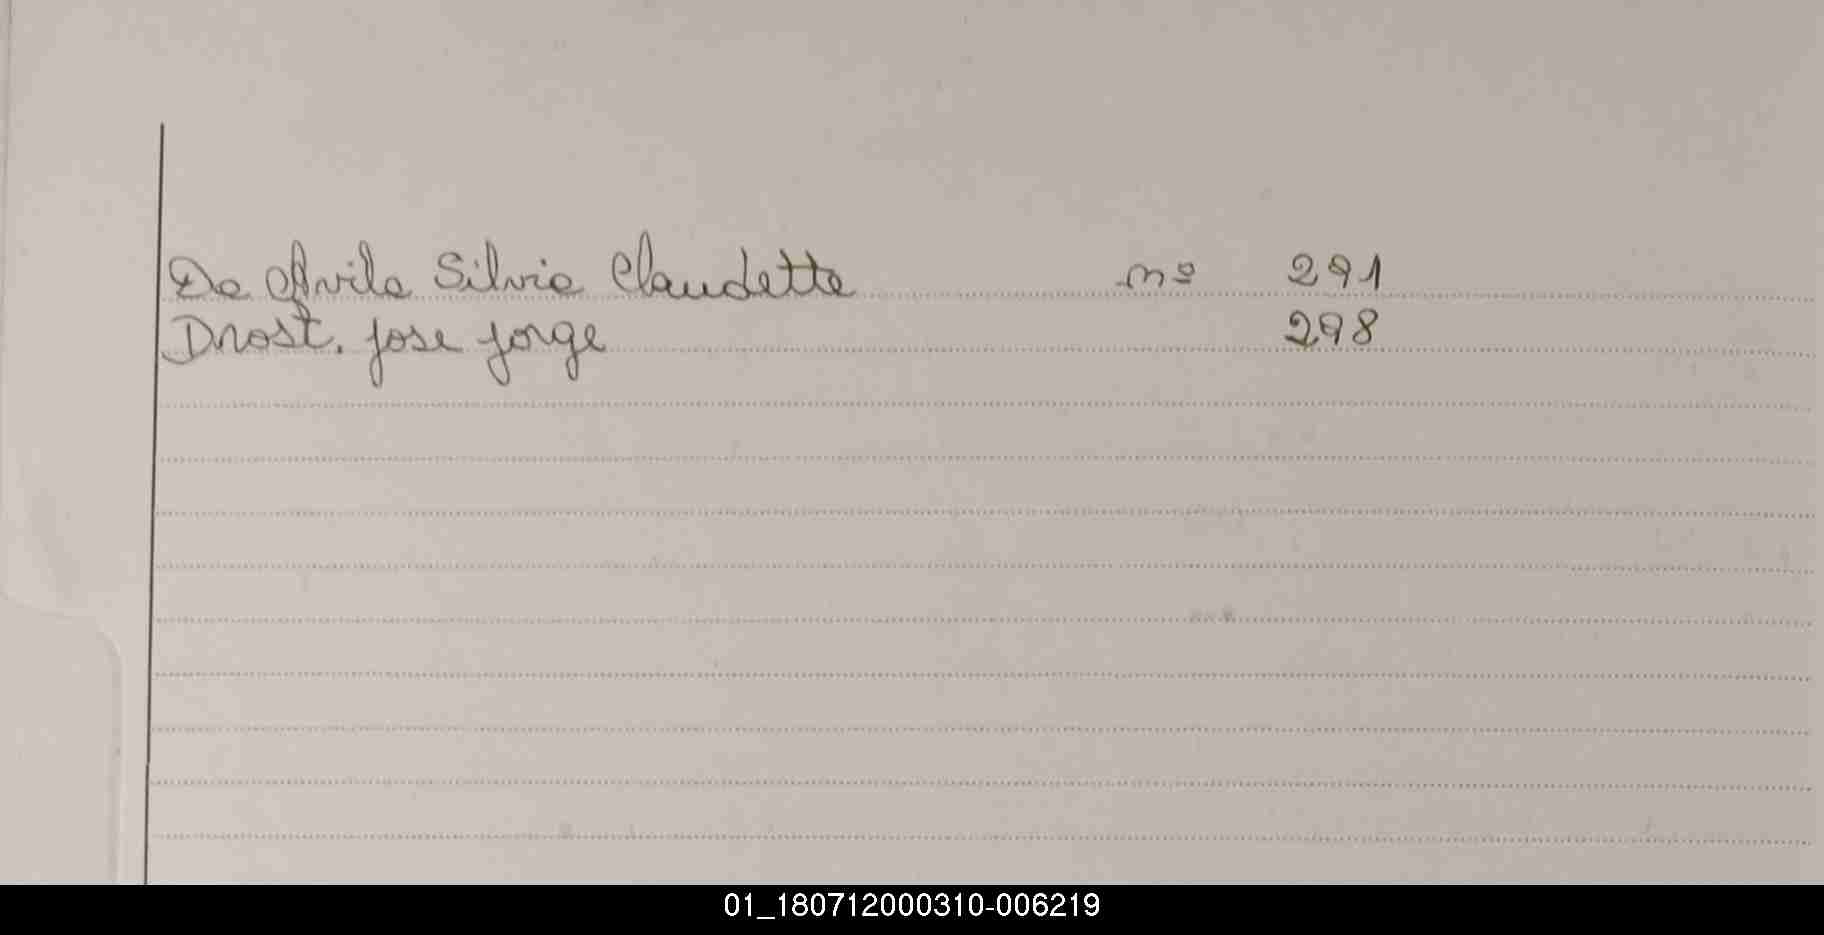 De Avila Silvia Claudette nº 291
Drost. jose jorge 298
01_180712000310-006219